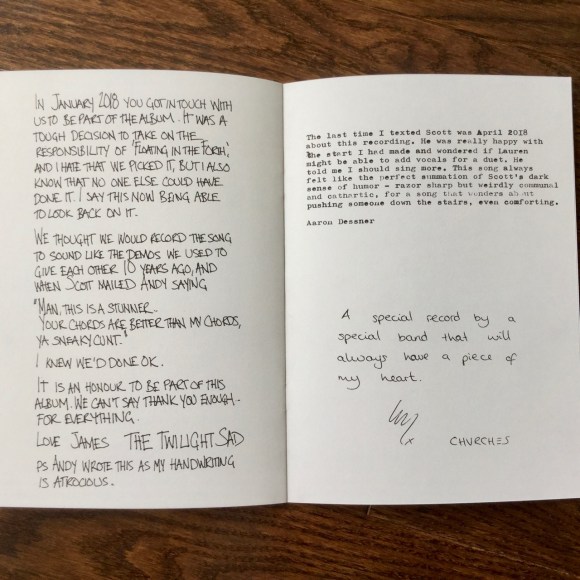 IN JANUARY 2018 YOU GOT IN TOUCH WITH
US TO BE PART OF THE ALBUM. IT WAS A
TOUGH DECISION TO TAKE ON THE
RESPONSIBILITY OF 'FLOATING IN THE FORTH',
AND I HATE THAT WE PICKED IT, BUT I ALSO
KNOW THAT NO ONE ELSE COULD HAVE
DONE IT. I SAY THIS NOW BEING ABLE
TO LOOK BACK ON IT.
WE THOUGHT WE WOULD RECORD THE SONG
TO SOUND LIKE THE DEMOS WE USED TO
GIVE EACH OTHER 10 YEARS AGO, AND
WHEN SCOTT MAILED ANDY SAYING
"MAN, THIS IS A STUNNER..
YOUR CHORDS ARE BETTER THAN MY CHORDS,
YA SNEAKY CUNT."
I KNEW WE'D DONE OK.
IT IS AN HONOUR TO BE PART OF THIS
ALBUM. WE CAN'T SAY THANK YOU ENOUGH -
FOR EVERYTHING.
LOVE JAMES THE TWILIGHT SAD
PS ANDY WROTE THIS AS MY HANDWRITING
IS ATROCIOUS.
The last time I texted Scott was April 2018
about this recording. He was really happy with
the start I had made and wondered if Lauren
might be able to add vocals for a duet. He
told me I should sing more. This song always
felt like the perfect summation of Scott's dark
sense of humor - razor sharp but weirdly communal
and cathartic, for a song that wonders about
pushing someone down the stairs, even comforting.
Aaron Dessner
A special record by a
special band that will
always have a piece of
my heart.
x CHVRCHES